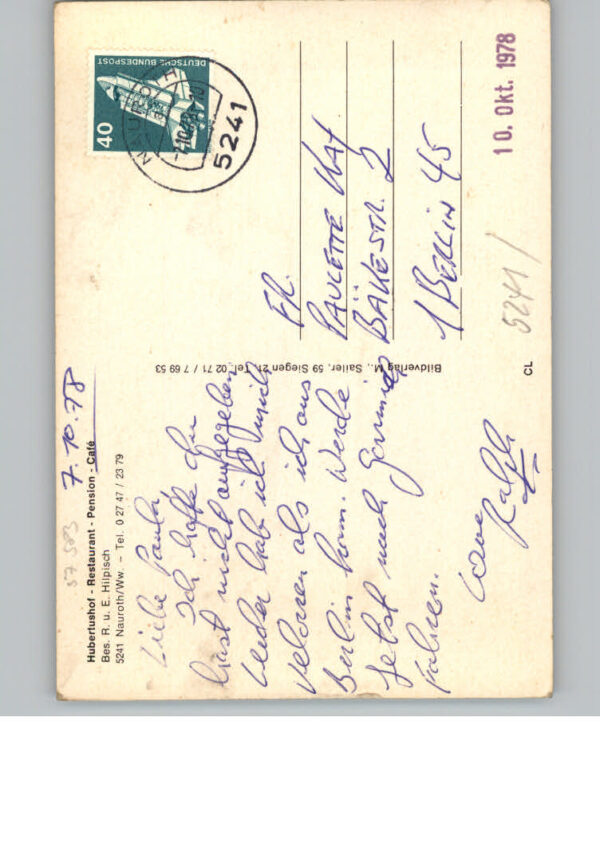 Hubertushof - Restaurant - Pension - Café
Bes. R. u. E. Hilpisch
5241 Nauroth/Ww. – Tel. 0 27 47 / 23 79
7.10.78
Liebe Paula,
Ich hoffe du
hast nicht aufgegeben
leider hab ich
verloren als ich aus
Berlin kam. Werde
jetzt nach
fahren.
Love
Ralph
Bildverlag M. Sailer, 59 Siegen 21, Tel. 02 71 / 7 69 53
DEUTSCHE BUNDESPOST
40
NAUROTH
5241
10. Okt. 1978
FR.
PAULETTE
BÄKESTR. 2
1 BERLIN 45
5241/
CL